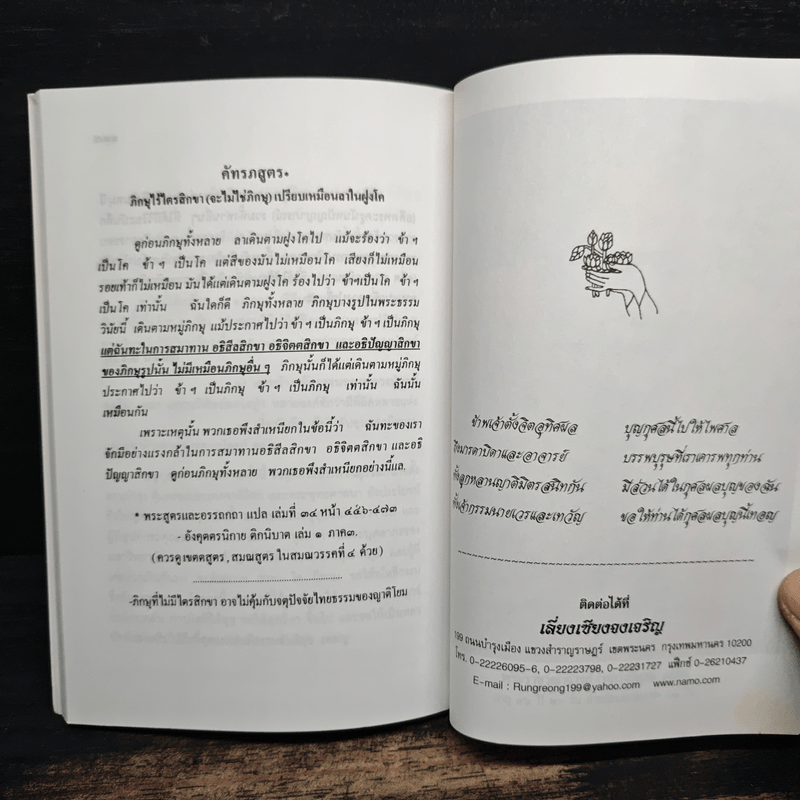 คัทรภสูตร*
ภิกษุไร้ไตรสิกขา (จะไม่ใช่ภิกษุ) เปรียบเหมือนลาในฝูงโค
ดูก่อนภิกษุทั้งหลาย ลาเดินตามฝูงโคไป แม้จะร้องว่า ข้า ฯ
เป็นโค ข้า ฯ เป็นโค แต่สีของมันไม่เหมือนโค เสียงก็ไม่เหมือน
รอยเท้าก็ไม่เหมือน มันได้แต่เดินตามฝูงโค ร้องไปว่า ข้าฯเป็นโค ข้า ฯ
เป็นโค เท่านั้น ฉันใดก็ดี ภิกษุทั้งหลาย ภิกษุบางรูปในพระธรรม
วินัยนี้ เดินตามหมู่ภิกษุ แม้ประกาศไปว่า ข้า ฯ เป็นภิกษุ ข้า ฯ เป็นภิกษุ
แต่ฉันทะในการสมาทาน อธิสีลสิกขา อธิจิตตสิกขา และอธิปัญญาสิกขา
ของภิกษุรูปนั้น ไม่มีเหมือนภิกษุอื่น ๆ ภิกษุนั้นก็ได้แต่เดินตามหมู่ภิกษุ
ประกาศไปว่า ข้า ฯ เป็นภิกษุ ข้า ฯ เป็นภิกษุ เท่านั้น ฉันนั้น
เหมือนกัน
เพราะเหตุนั้น พวกเธอพึงสำเหนียกในข้อนี้ว่า ฉันทะของเรา
จักมีอย่างแรงกล้าในการสมาทานอธิสีลสิกขา อธิจิตตสิกขา และอธิ
ปัญญาสิกขา ดูก่อนภิกษุทั้งหลาย พวกเธอพึงสำเหนียกอย่างนี้แล.
* พระสูตรและอรรถกถา แปล เล่มที่ ๓๔ หน้า ๔๔๖-๔๗๓
- อังคุตตรนิกาย ติกนิบาต เล่ม ๑ ภาค๓.
(ควรดู เขตตสูตร, สมณสูตร ในสมณวรรคที่ ๔ ด้วย)
-ภิกษุที่ไม่มีไตรสิกขา อาจไม่คุ้มกับจตุปัจจัยไทยธรรมของญาติโยม
ข้าพเจ้าตั้งจิตอุทิศผล บุญกุศลนี้ไปให้ไพศาล
ถึงมารดาบิดาและอาจารย์ บรรพบุรุษที่เราเคารพทุกท่าน
ทั้งลูกหลานญาติมิตรสนิทกัน มีส่วนได้ในกุศลผลบุญของฉัน
ทั้งเจ้ากรรมนายเวรและเทวัญ ขอให้ท่านได้กุศลผลบุญนี้เทอญ
ติดต่อได้ที่
เลี่ยงเซียงจงเจริญ
199 ถนนบำรุงเมือง แขวงสำราญราษฎร์ เขตพระนคร กรุงเทพมหานคร 10200
โทร. 0-22226095-6, 0-22223798, 0-22231727 แฟ็กซ์ 0-26210437
E-mail : Rungreong199@yahoo.com www.namo.com